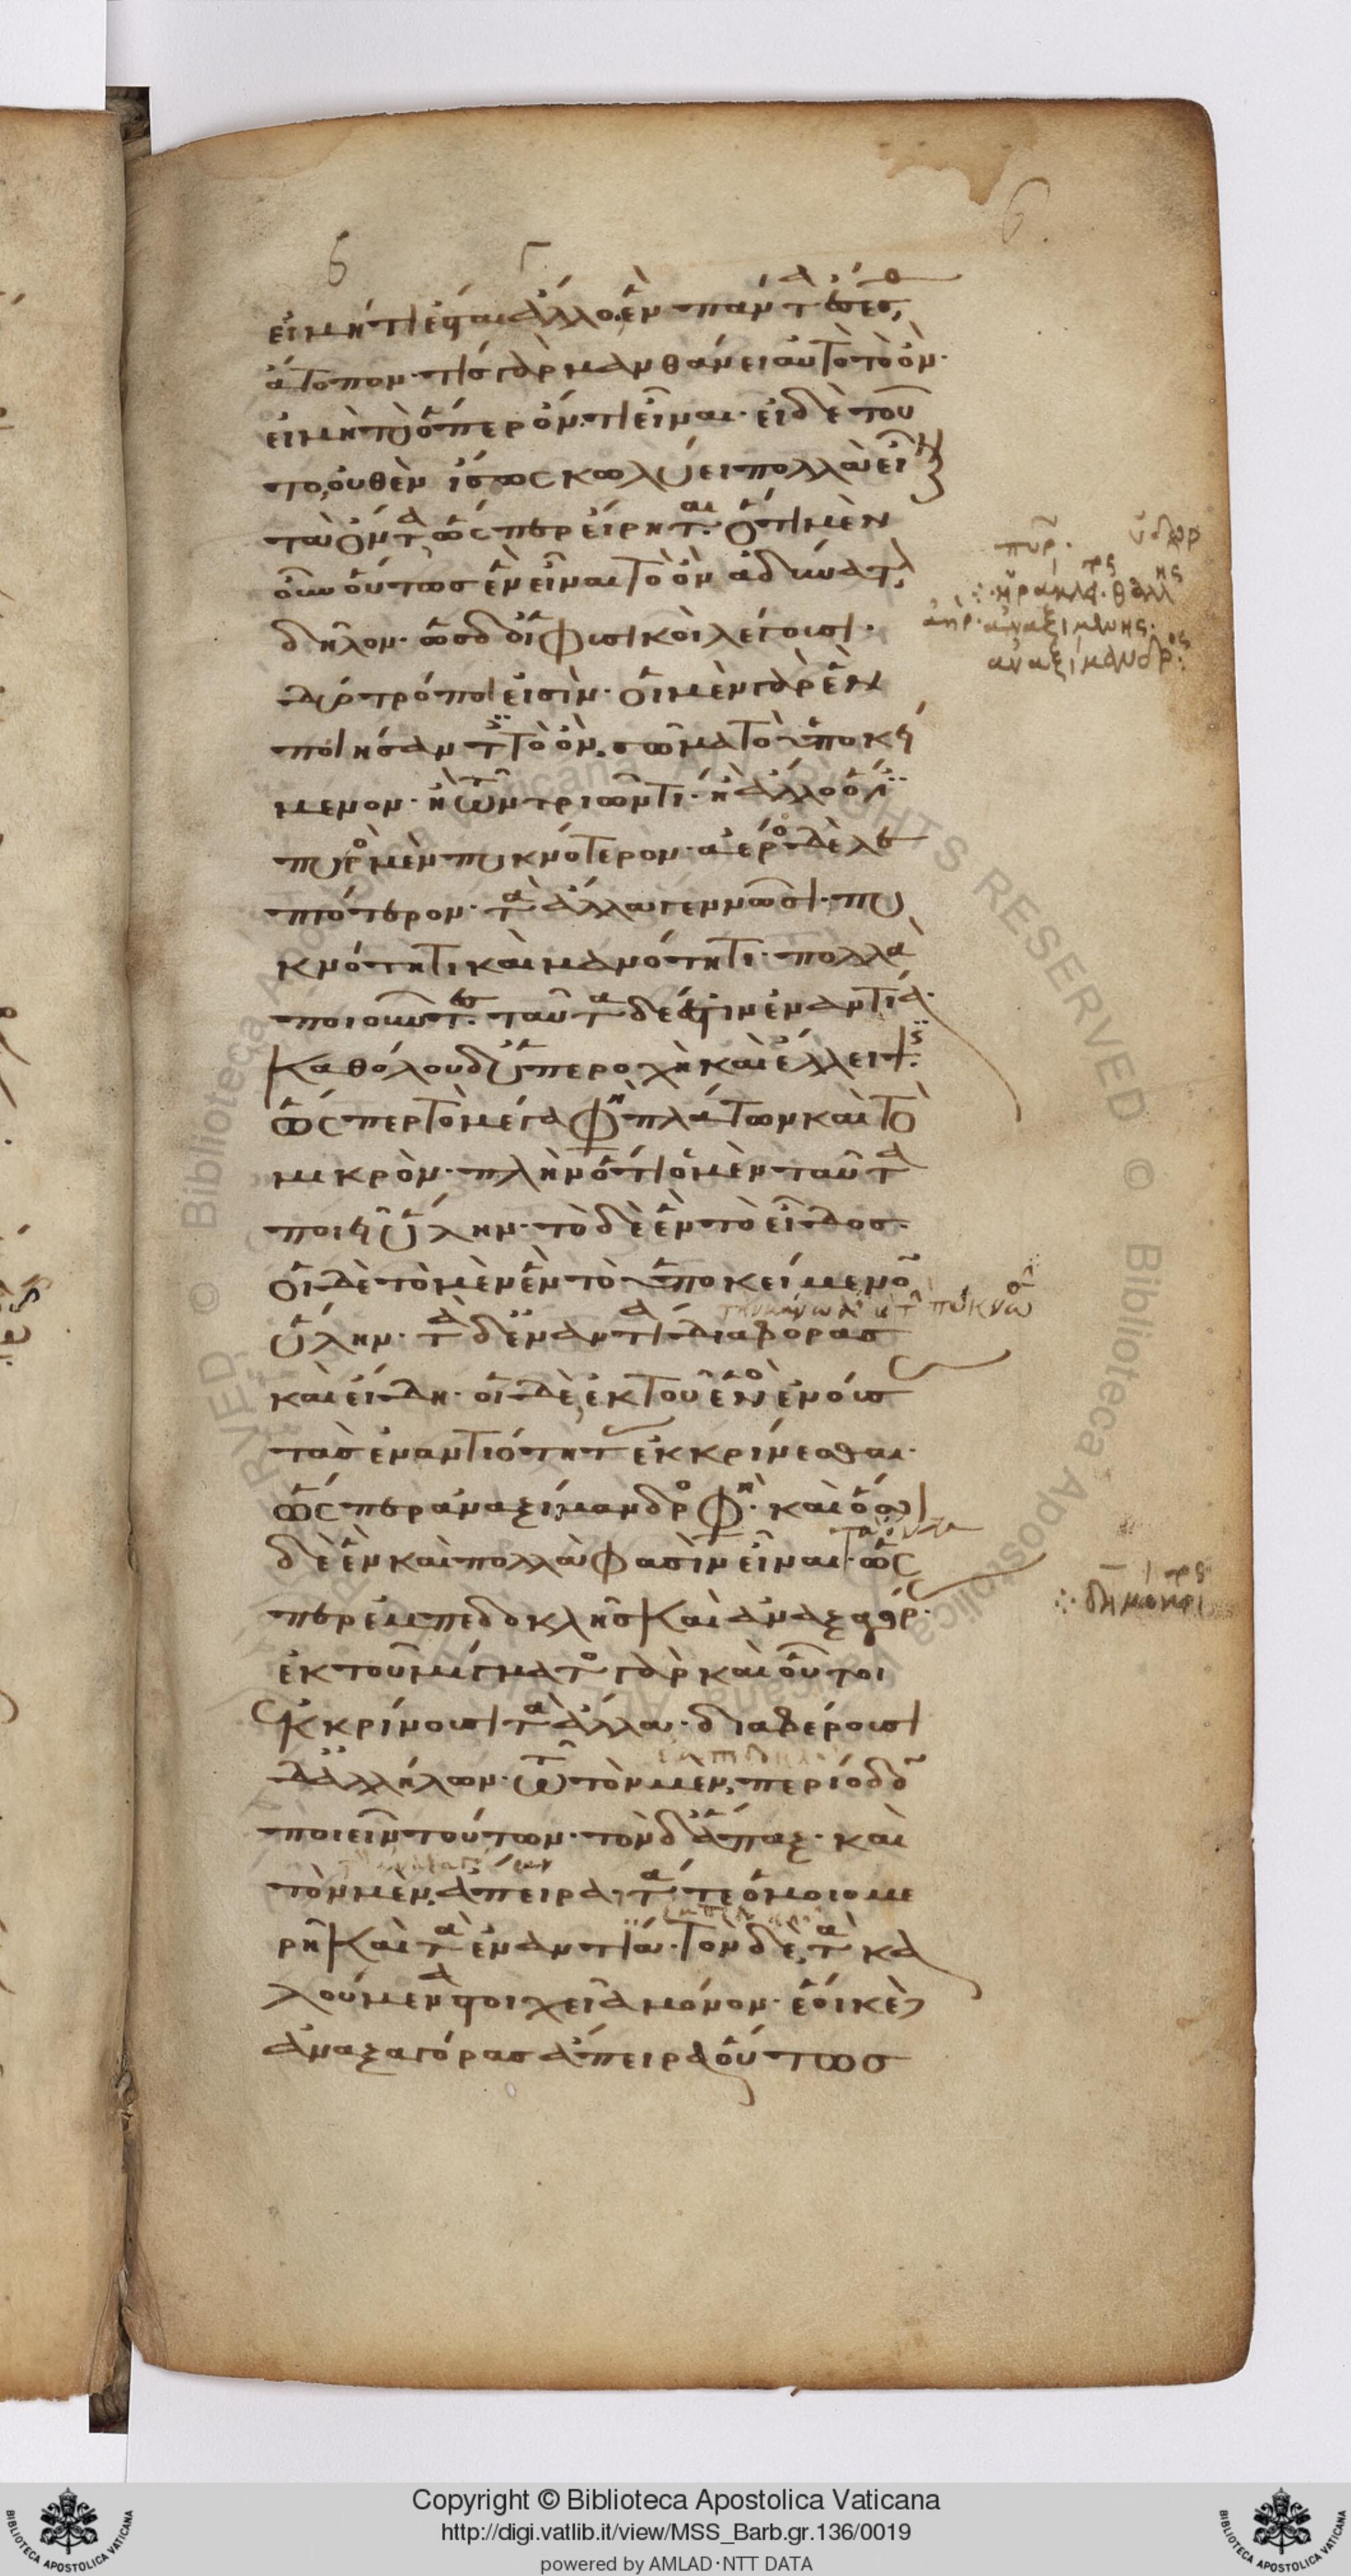 εἰ μή τι ἔσται ἄλλο ἓν πάντως ἐστὶν
ἄτοπον· τίς γὰρ μανθάνει αὐτὸ τὸ ὂν·
εἰ μὴ τὸ ὅπερ ὄν τι εἶναι· εἰ δὲ τοῦ
το, οὐθὲν ἴσως κωλύει πολλὰ εἶναι
τὰ ὄντα ὥσπερ εἴρηται· ὅτι μὲν
οὖν οὕτως ἓν εἶναι τὸ ὂν ἀδύνατον,
δῆλον· ὡς δ' οἱ φυσικοὶ λέγουσι·
δύο τρόποι εἰσίν· οἱ μὲν γὰρ ἓν
ποιήσαντες τὸ ὂν, σῶμα τὸ ὑποκεί
μενον· ἢ τῶν τριῶν τι· ἢ ἄλλο ὅ ἐστι
πυρὸς μὲν πυκνότερον· ἀέρος δὲ λε
πτότερον· τὰ ἄλλα γεννῶσι· πυ
κνότητι καὶ μανότητι· πολλὰ
ποιοῦντες· ταῦτα δ' ἐστὶν ἐναντία·
καθόλου δ' ὑπεροχὴ καὶ ἔλλειψις·
ὥσπερ τὸ μέγα φησὶ πλάτων καὶ τὸ
μικρὸν· πλὴν ὅτι ὁ μὲν ταῦτα
ποιεῖ ὕλην· τὸ δὲ ἓν τὸ εἶδος·
οἱ δὲ τὸ μὲν ἓν τὸ ὑποκείμενον
ὕλην· τὰ δ' ἐναντία διαφορὰς
καὶ εἴδη· οἱ δὲ, ἐκ τοῦ ἑνὸς ἐνούσας
τὰς ἐναντιότητας ἐκκρίνεσθαι·
ὥσπερ ἀναξίμανδρος φησὶ· καὶ ὅσοι
δὲ ἓν καὶ πολλὰ φασὶν εἶναι τὰ ὄντα· ὥς
περ ἐμπεδοκλῆς καὶ ἀναξαγόρας·
ἐκ τοῦ μίγματος γὰρ καὶ οὗτοι
ἐκκρίνουσι τὰ ἄλλα· διαφέρουσι
δ' ἀλλήλων· τῷ τὸν μὲν, περίοδον
ποιεῖν τούτων· τὸν δ' ἅπαξ· καὶ
τὸν μὲν, ἄπειρα, τά τε ὁμοιομε
ρῆ καὶ τὰ ἐναντία· τὸν δὲ, τὰ κα
λούμενα στοιχεῖα μόνον· ἔοικε δὲ
ἀναξαγόρας ἄπειρα οὕτως
πῦρ· ὕδωρ
ἡράκλειτος· θαλῆς
ἀήρ· ἀναξιμένης·
ἀναξίμανδρος
δημόκριτος